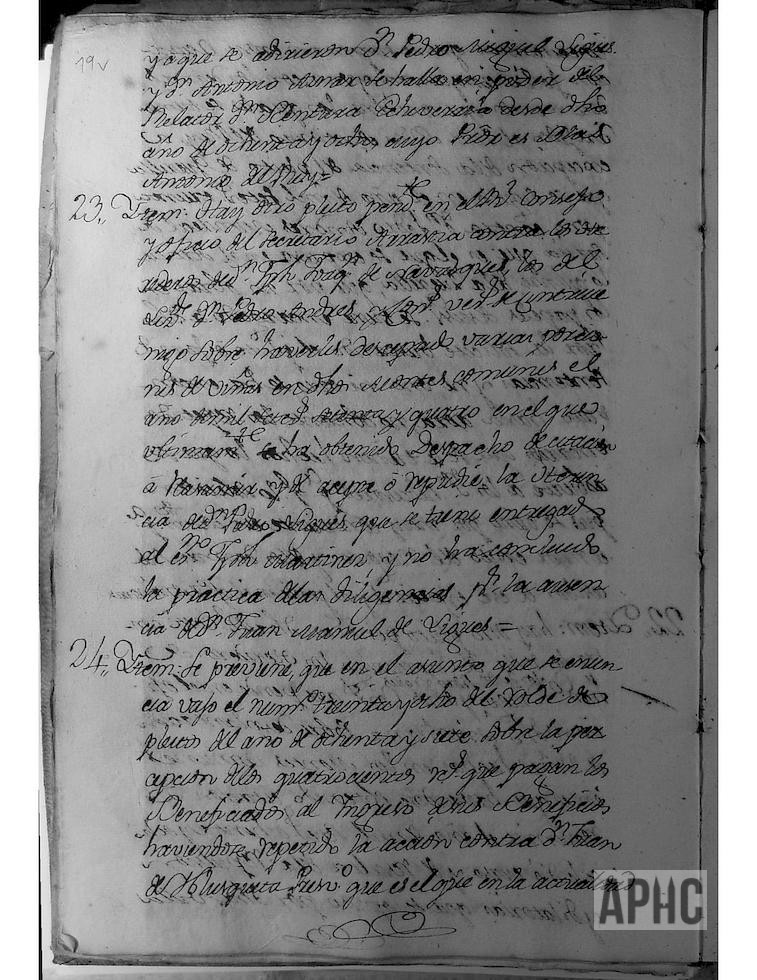 19v
y a que se adirieron Dn. Pedro Miguel Ligues
y Dn. Antonio Aznar se halla en poder del
Relator Dn. Ventura Echeverria desde dho
año de ochenta y ocho, cuyo Prdr es
Antonio del Rey =
23,, Ytem. Hay otro pleito pendte. en el Rl. Consejo
y oficio del Secretario Arrastia contra los he
rederos de Dn. Jph Joaqn. de Navasques, los del
Liz.do Dn. Pedro Andres, y Dn.
sobre haverles desceparado varias porcio
nes de Viñas en dhos Montes comunes el
año de mil setezs. setenta y quatro en el que
ultimamte. se ha obtenido Despacho de citacion
á y qe. acepte ó repudie la Heren
cia de Dn. Pedro Ligues, que se tiene entregado
al esno. Jph Martinez y no ha concluido
la práctica de las diligencias pr. la ausen
cia de Dn. Juan Manuel de Ligues =
24,, Ytem. Se previene, que en el asunto que se enun
cia vajo el numº. treinta y ocho del rolde de
pleitos del año de ochenta y siete sobre la per
cepcion de los quatrocientos rs. que pagan los
Beneficiados al Ingreso de sus Beneficios
haviendose repetido la accion contra Dn. Juan
de Presvº. que es el que en la actualidad
APHC